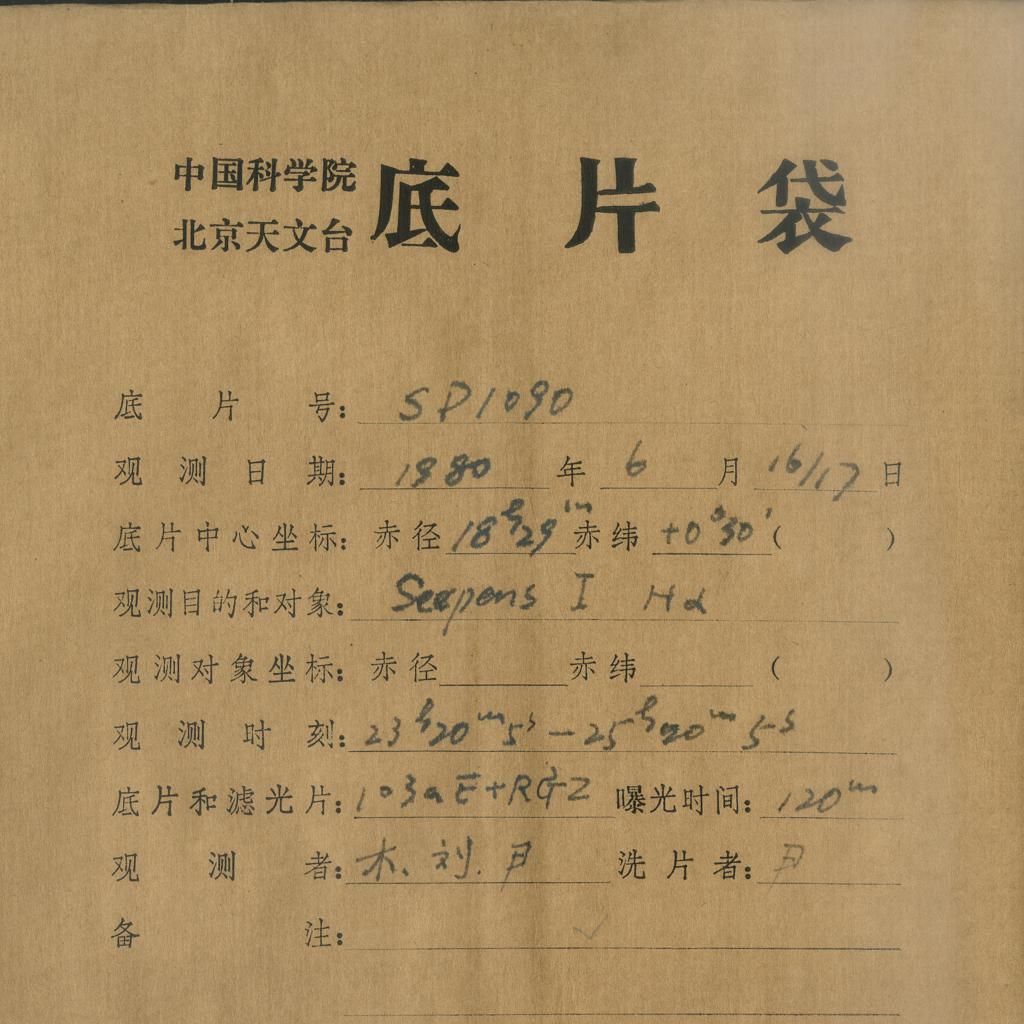 中国科学院
北京天文台
底片袋
底片号：SP1090
观测日期：1980年6月16/17日
底片中心坐标：赤径18h29m赤纬+0°30′( )
观测目的和对象：Serpens I Hα
观测对象坐标：赤径 赤纬 ( )
观测时刻：23h20m5s—25h20m5s
底片和滤光片：103aE+RG2 曝光时间：120m
观测者：木、刘.尹 洗片者：尹
备注：